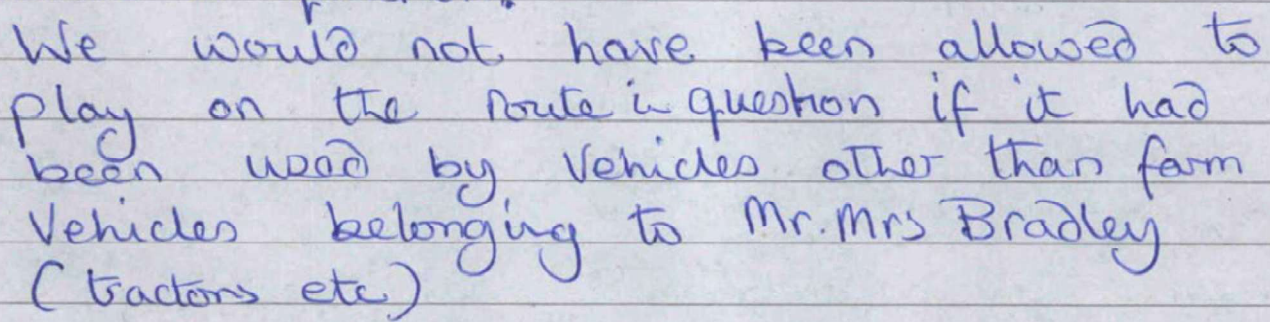 We would not have been allowed to
play on the route in question if it had
been used by vehicles other than farm
vehicles belonging to Mr. Mrs Bradley
(tractors etc)